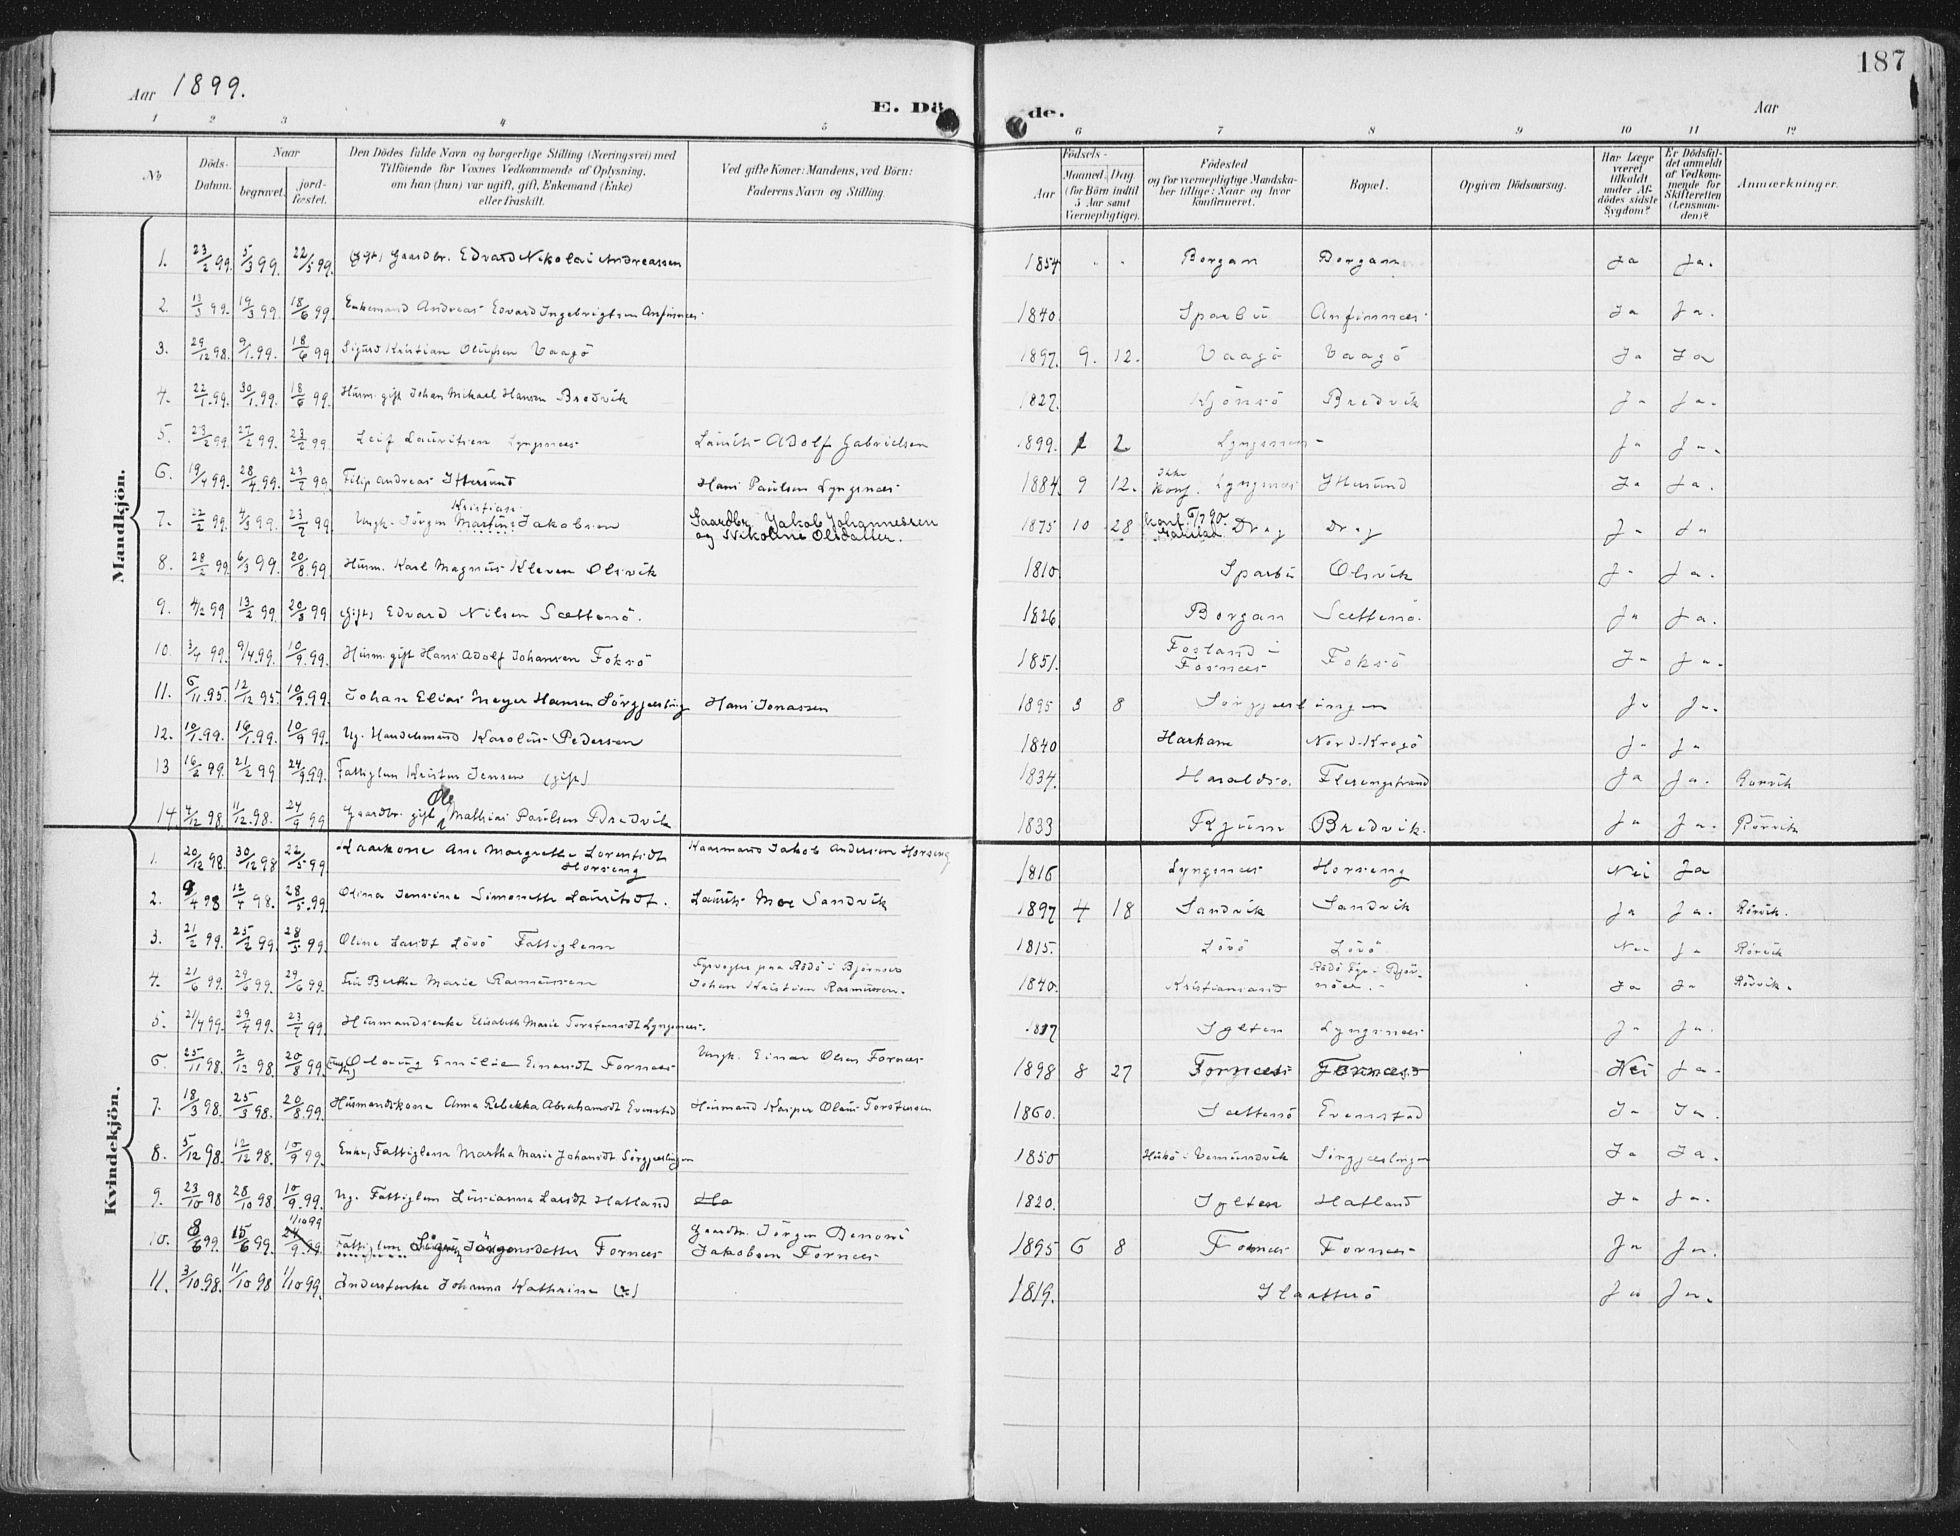 187
Aar 1899.
E. Dö de.
Aar
1 2 3 4 5 6 7 8 9 10 11 12
No
Döds-Datum.
Naar
begravet.
jord-fæstet.
Den Dödes fulde Navn og borgerlige Stilling (Næringsvei) med
Tilföiende for Voxnes Vedkommende af Oplysning,
om han (hun) var ugift, gift, Enkemand (Enke)
eller fraskilt.
Ved gifte Koner: Mandens, ved Börn:
Faderens Navn og Stilling.
Födsels-
Aar
Maaned. Dag
(for Börn indtil
5 Aar samt
Værnepligtige).
Födested
og for værnepligtige Mandska-
ber tillige: Naar og hvor
konfirmeret.
Bopæl.
Opgiven Dödsaarsag.
Har Læge
været
tilkaldt
under Af-
dödes sidste
Sygdom?
Er Dödsfal-
det anmeldt
af Vedkom-
mende for
Skifteretten
(Lensman-
den)?
Anmærkninger.
Mandkjön.
1. 23/2 99. 5/3 99. 22/5 99. (gift) Gaardbr. Edvard Nikolai Andreassen 1854 " " Borgan Borgan Ja Ja.
2. 13/3 99. 19/3 99. 18/6 99. Enkemand Andreas Edvard Ingebrigtsen Anfinnæs. 1840. Sparbu Anfinnæs. Ja Ja.
3. 29/12 98. 9/1.99. 18/6 99. Sigurd Kristian Olufsen Vaagö 1897. 9. 12. Vaagö Vaagö Ja Ja
4. 22/1.99. 30/1.99. 18/6 99. Husm. gift Johan Mikael Hansen Bredvik 1827. Bredvik Ja Ja.
5. 23/2 99. 27/2 99. 23/7 99. Leif Lauritsen Lyngsnæs Laurits Adolf Gabrielsen 1899. 1 2 Lyngsnæs Ja Ja.
6. 19/4 99. 28/4.99. 23/7 99. Filip Andreas Ittersund Hans Paulsen Lyngsnæs 1884. 9 12. Ikke Konf. Lyngsnæs Ittersund Ja Ja.
7. 22/2 99. 4/3 99. 23/7 99. Ungk. Jörgen Martin Kristian Jakobsen Gaardbr. Jakob Johannessen og Nikoline Olsdatter. 1875 10 28 Konf. Drag Drag Ja Ja
8. 28/2 99. 6/3 99. 20/8.99. Husm. Karl Magnus Kleven Olsvik 1810 Sparbu Olsvik Ja Ja.
9. 4/2 99 13/2 99. 20/8 99 (gift) Edvard Nilsen Sættersö. 1826. Borgan Sættersö. Ja Ja.
10. 3/4 99. 9/4.99. 10/9.99. Husm. gift Hans Adolf Johansen Foksö 1851. Fosland i Fosnæs Foksö Ja Ja.
11. 6/11.95. 12/12 95. 10/9.99. Johan Elias Meyer Hansen Sörgjæsling Hans Jonassen 1895 3 8 Sörgjæslingen Ja Ja.
12. 10/1.99. 16/1.99. 10/9 99. Ug. Handelsmand Karolus Pedersen 1840 Harham Nord-Krogö Ja Ja
13 16/2 99. 21/2 99 24/9.99. Fattiglem Jensen (gift) 1834. Haraldso. Flerengstrand Ja Ja. Rørvik
14. 4/12 98. 11/12.98. 24/9 99 Gaardbr. gift Ole Mathias Paulsen Bredvik 1833 Bredvik. Ja Ja. Rörvik
Kvindekjön.
1. 20/12 98. 30/12 98 22/5.99 Kaarkone Ane Margrethe Lorentsdt Horseng Kaarmand Jakob Andersen Horseng 1816 Lyngsnæs Horseng Nei Ja
2. 9/4 98 12/4 98. 28/5.99. Olina Jensine Simonette Lauritsdt. Laurits Moe Sandvik 1897 4 18 Sandvik Sandvik Ja Ja. Rörvik.
3. 21/2 99. 25/2 99. 28/5 99. Oline Larsdt Lövö Fattiglem 1815. Lövö Lövö Nei Ja Rörvik
4. 21/6 99. 29/6 99. 29/6 99. Fru Berthe Marie Rasmussen Fyrvogter paa Rödö i Björnöer Johan Kristian Rasmussen. 1840. Kristiansand Rödö Fyr i Björnöer. Ja Ja Rörvik.
5. 21/4 99. 29/4 99. 23/7 99. Husmandsenke Elisabeth Marie Torstensdt Lyngsnæs. 1817 Solten Lyngsnæs Ja Ja.
6. 25/11 98. 2/12 98. 20/8 99. Olaug Emilie Einarsdt Fornæs Ungk. Einar Olsen Fornæs 1898 8 27 Fornæs Fornæs Nei Ja.
7. 18/3 98. 25/3 98. 20/8.99. Husmandskone Anna Rebekka Abrahamsdt Evenstad Husmand Kasper Olaus Torstensen 1860. Sættersö Evenstad Ja Ja.
8. 5/12 98. 12/12 98. 10/9 99. Enke, Fattiglem Martha Marie Johansdt Sörgjæslingen 1850 Vemundvik Sörgjæslingen Ja Ja.
9. 23/10 98 28/10 98. 10/9.99. Ug. Fattiglem Lusianna Larsdt Hatland Ha 1820. Solten Hatland Ja Ja.
10. 8/6 99. 15/6 99. 24/9.99 1/10 99 Fattiglem Sigrid Jörgensdatter Fornæs Gaardbr. Jörgen Benoni Jakobsen Fornæs 1895 6 8 Fornæs Fornæs Ja Ja.
11. 3/10.98. 11/10 98 1/10 99. Inderstenke Johanna Kathrine 1819. Ja Ja.